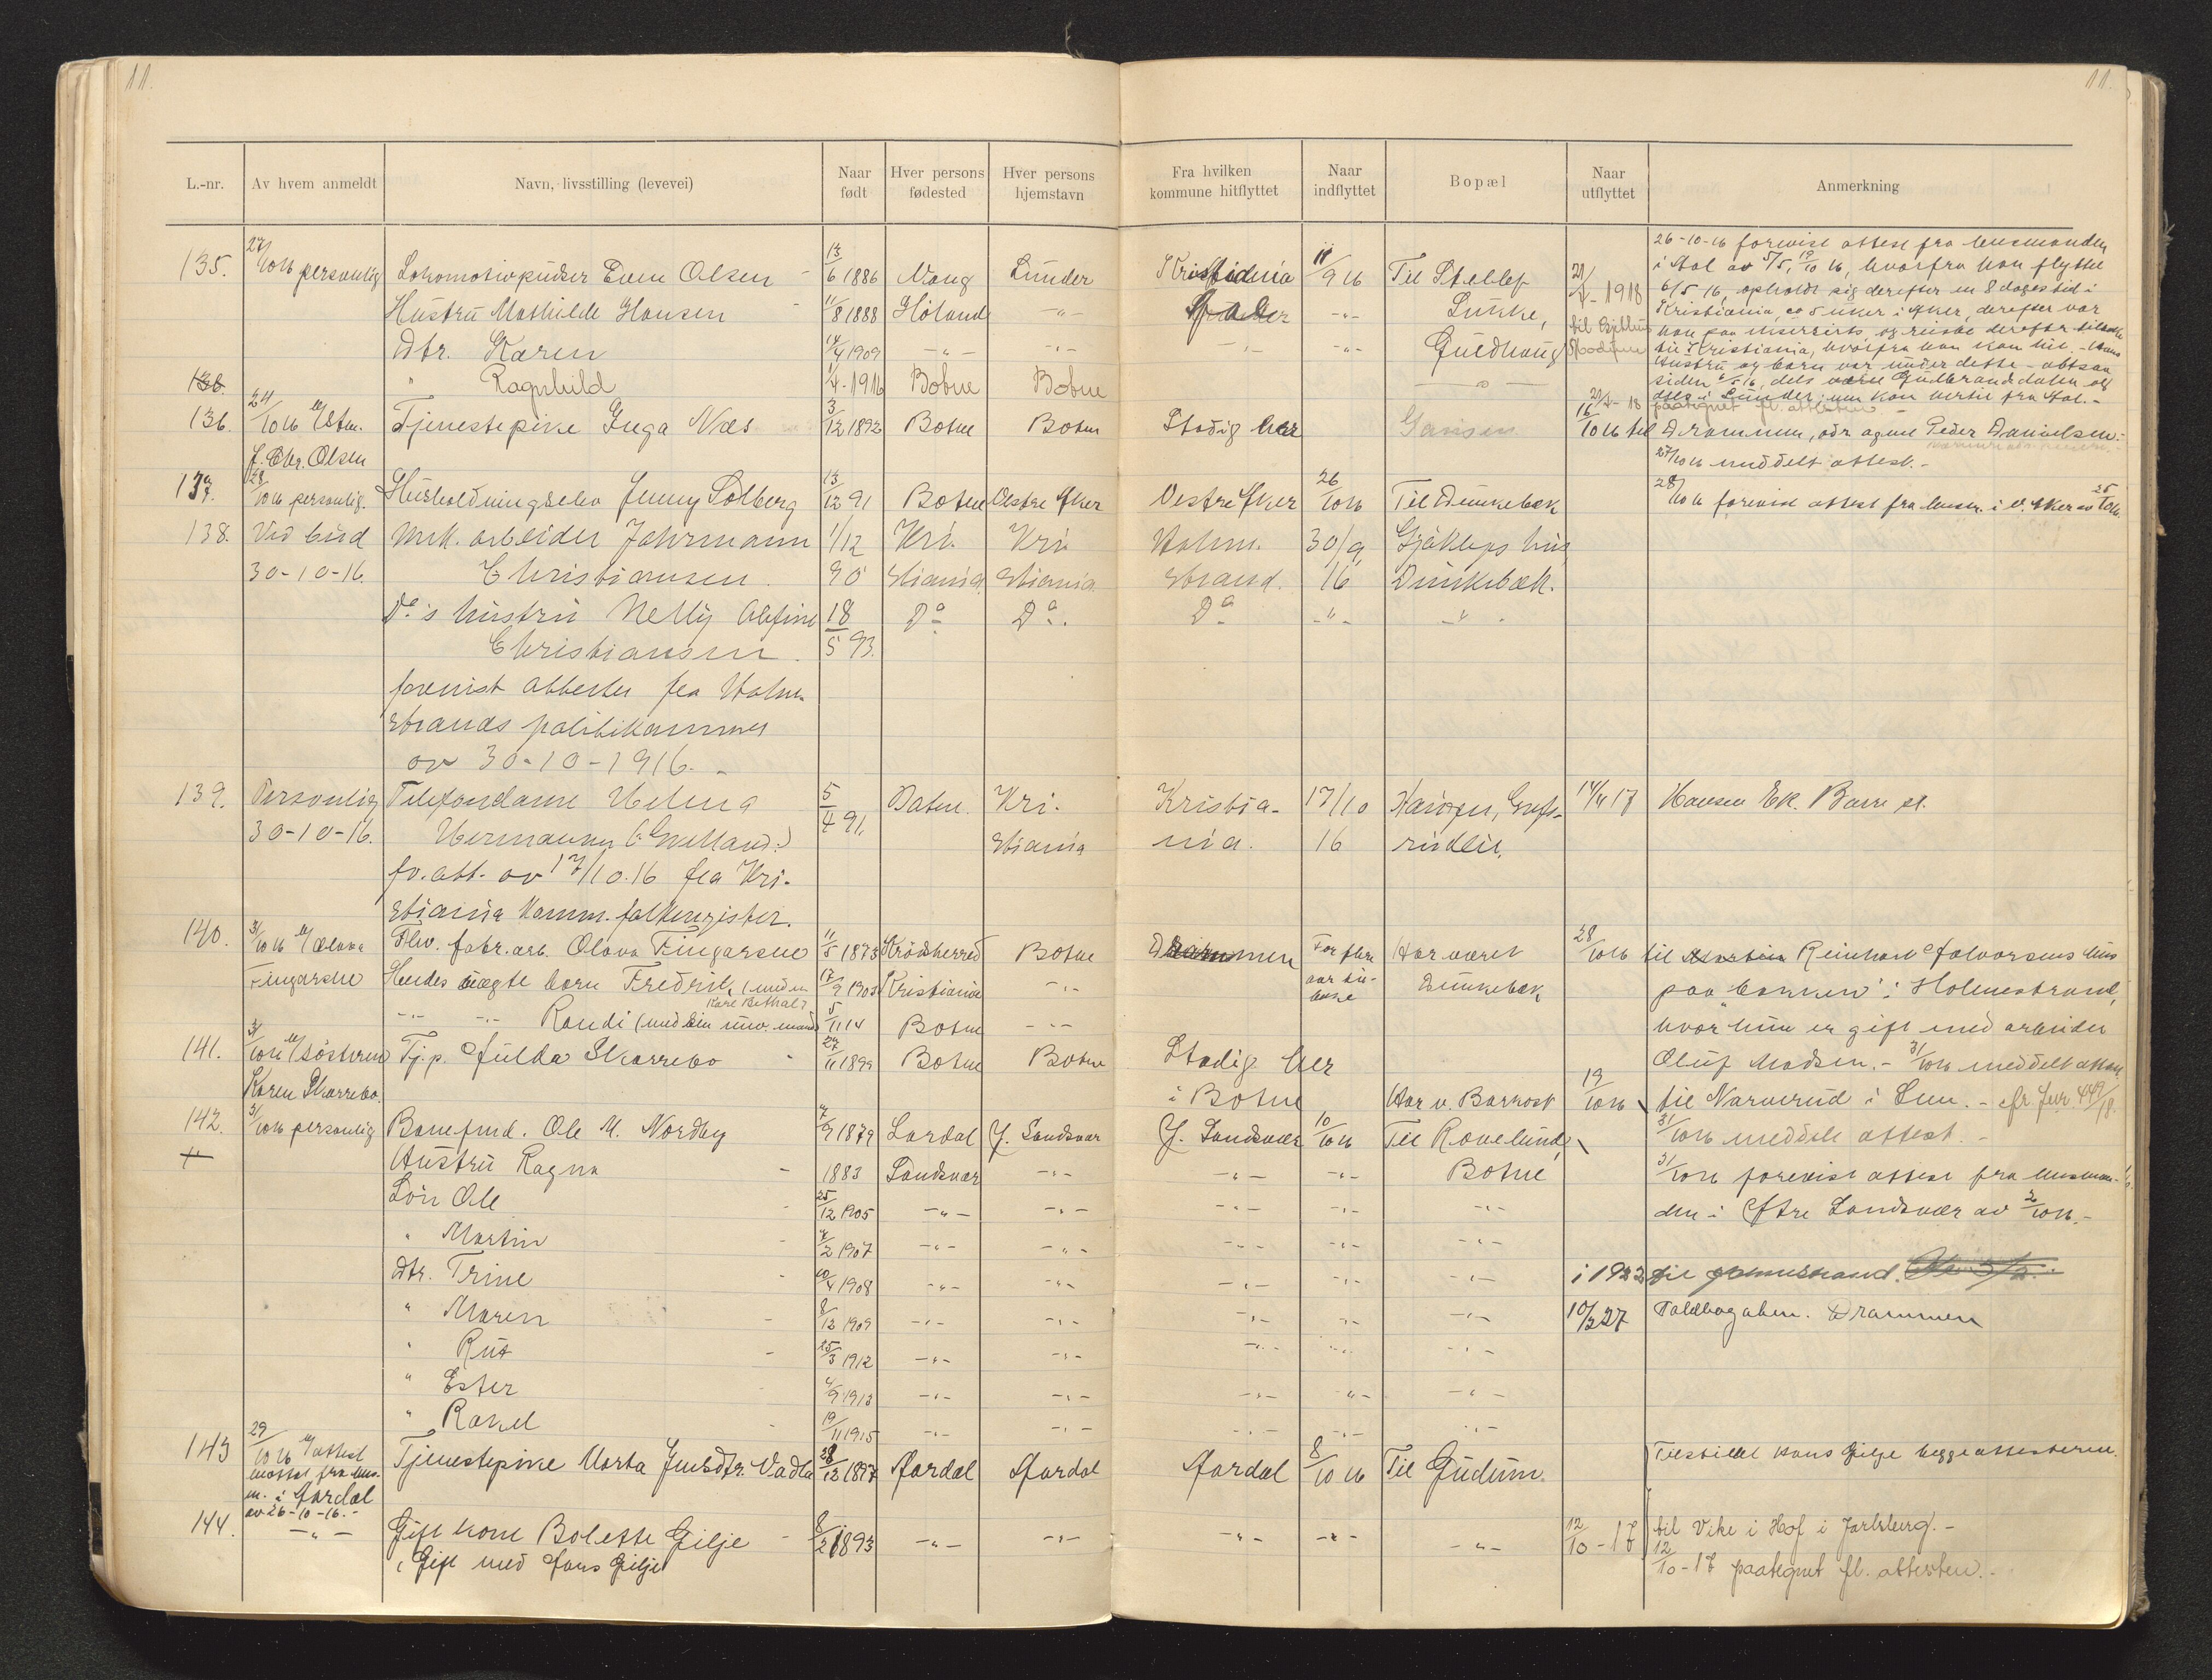 11.
11.
L.-nr. Av hvem anmeldt Navn, livsstilling (levevei) Naar født Hver persons fødested Hver persons hjemstavn Fra hvilken kommune hitflyttet Naar indflyttet Bopæl Naar utflyttet Anmerkning
135. 27/10 16 personlig Lokomotivpudser Even Olsen 13/6 1886 Nang Lunder Kristiania 11/9 16 Til Stellef 21/4-1918 26-10-16 forevist attest fra lensmanden
i Aal av 5/5, 19/10 16, hvorfra han flyttet
Hustru Mathilde Hansen 11/8 1888 Höland -"- -"- Lunke, 6/5 16, opholdt sig derefter en 8 dages tid i
Kristiania, ca 5 uker i Aker, derefter var
Dtr. Karen 14/4 1909 -"- -"- -"- -"- Guldhaug han paa
til Kristiania, hvorfra han kom hit. - Hans
" Ragnhild 1/4-1916 Botne Botne -"- hustru og barn var under dette
siden 6/5 16, dels Gudbrandsdalen og
dels i Lunder; men kom hertil fra Aal.-
136. 24/10 16 v/ Stm. Tjenestepike Inga Næs 3/12 1892 Botne Botne Stadig her Gausen 16/10 16 til Drammen, adr agent Peder Danielsen.
J. Chr. Olsen 27/10 16 meddelt attest.-
137. 28/10 16 personlig. Husholdningselev Jenny Solberg 13/12 91 Botne Vestre Aker Vestre Aker 26/10 16 Til Dunkebæk 28/10 16 forevist attest fra lensm. i V. Aker av 25/10 16.
138. Ved bud mek. arbeider Johrmann 1/12 Kri- Kri- Holm. 30/9 Gjökleps hus
30-10-16. Christiansen. 90 stiania stiania. strand. 16 Dunkebæk.
Do's hustru Nelly Alfine 18 Do Do. Do -"- -"-
Christiansen. 5 93.
forevist attester fra Holm-
strands politikammer
av 30-10-1916.-
139. Personlig Telefondame Helma 5/4 91. Botne. Kri- Kristia- 17/10 Hansen, Grefs- 14/4 17 Hansen Ek. Barre st.
30-10-16. Hermansen stiania nia. 16 rudlie.
fv. att. av 17/10.16 fra Kri-
stiania komm. folkeregister.
140. 31/10 16 v/ Olava Fhv. fabr. arb. Olava Fingarsen 11/5 1873 Krödsherred Botne Drammen For flere Har været 28/10 16 til Reinhart Halvorsens hus
Fingarsen Hendes uægte barn Fredrik (med en 17/9 1903 Kristiania -"- aar til- Dunkebæk paa "bakken" i Holmestrand,
Karl Bethal?) bake
-"- -"- Randi (med sin nuv. mand) 5/11 14 Botne -"- hvor hun er gift med arbeider
141. 31/10 16 v/ søsteren Tj.p. Hulda Skarrebo 27/11 1899 Botne Botne Stadig her Oluf Madsen.- 31/10 16 meddelt attest
Karen Skarrebo. i Botne Har v. Barkost 19/10 16 til Narverud i Sem. - cfr. Jur. 449/18.
142. 31/10 16 personlig Banefmd. Ole M. Nordby 7/9 1879 Lardal Y. Sandsvær Y. Sandsvær 10/10 16 Til Rovelund, 31/10 16 meddelt attest.-
Hustru Ragna 1883 Sandsvær -"- -"- -"- Botne 31/10 16 forevist attest fra lensman-
Sön Ole 25/12 1905 -"- -"- -"- -"- -"- den i Yttre Sandsvær av 2/10 16.-
" Martin 7/2 1907 -"- -"- -"- -"- -"-
Dtr. Trine 20/4 1908 -"- -"- -"- -"- i 1923 til Holmestrand.
" Maren 8/12 1909 -"- -"- -"- -"- -"- 10/2 27 Toldbogaten. Drammen
" Rut 25/3 1912 -"- -"- -"- -"- -"-
" Ester 4/9 1913 -"- -"- -"- -"- -"-
" Rakel 19/11 1915 -"- -"- -"- -"- -"-
143 29/10 16 v/ attest Tjenestepike Marta Jensdtr. Vadla 28/12 1897 Aardal Aardal Aardal 8/10 16 Til Gudum. Tilstillet Hans Gilje begge attesterne.
mottat fra lens-
m. i Aardal
av 26-10-16.-
144. -"- Gift kone Bolette Gilje 8/2 1893 -"- -"- -"- -"- -"- 12/10-17 til Vike i Hof i Jarlsberg.-
(Gift med Hans Gilje 12/10-17 paategnet fl. attesten.-